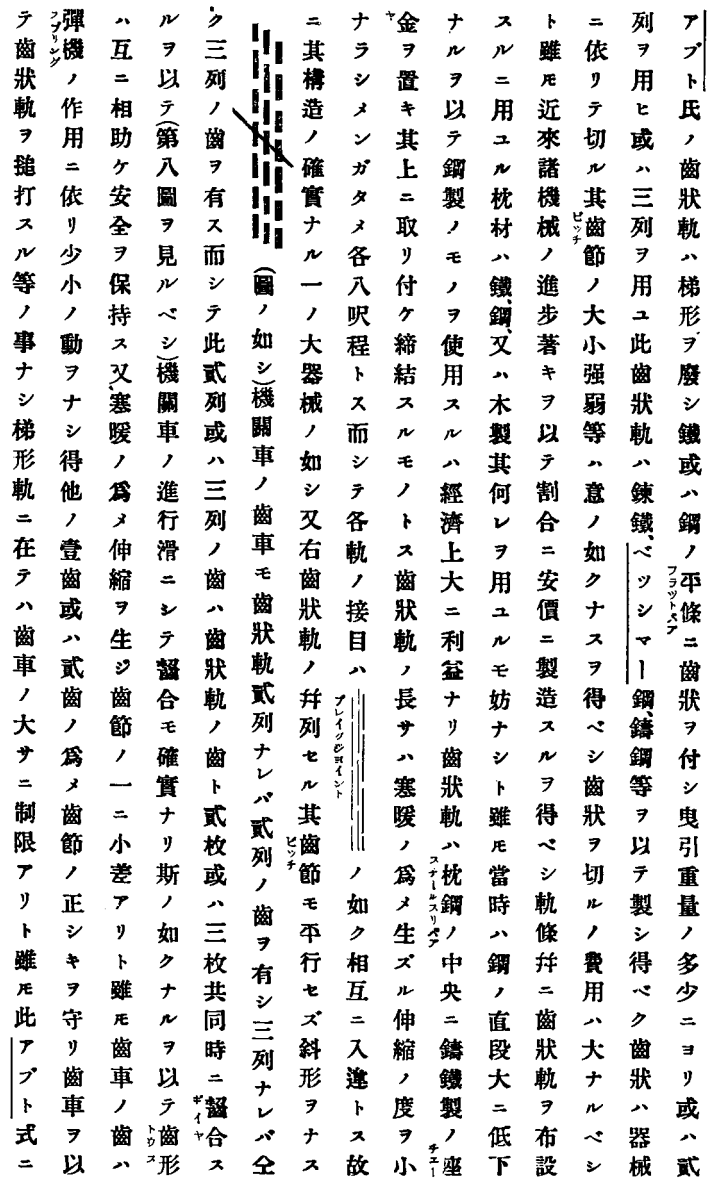 アプト氏ノ齒狀軌ハ梯形ヲ廢シ鐵或ハ鋼ノ平條ニ齒狀ヲ付シ曳引重量ノ多少ニヨリ或ハ貳
フラツトバア
列ヲ用ヒ或ハ三列ヲ用ユ此齒狀軌ハ鍊鐵、ベツシマー鋼、鑄鋼等ヲ以テ製シ得ベク齒狀ハ器械
ニ依リテ切ル其齒節ノ大小强弱等ハ意ノ如クナスヲ得ベシ齒狀ヲ切ルノ費用ハ大ナルベシ
ピッチ
ト雖モ近來諸機械ノ進步著キヲ以テ割合ニ安價ニ製造スルヲ得ベシ軌條幷ニ齒狀軌ヲ布設
スルニ用ユル枕材ハ鐵、鋼、又ハ木製其何レヲ用ユルモ妨ナシト雖モ當時ハ鋼ノ直段大ニ低下
ナルヲ以テ鋼製ノモノヲ使用スルハ經濟上大ニ利益ナリ齒狀軌ハ枕鋼ノ中央ニ鑄鐵製ノ座
スチールスリーパア
チエー
金ヲ置キ其上ニ取リ付ケ締結スルモノトス齒狀軌ノ長サハ塞暖ノ爲メ生ズル伸縮ノ度ヲ小
ヤ
ナラシメンガタメ各八呎程トス而シテ各軌ノ接目ハ
ブレイクジョイント
ノ如ク相互ニ入違トス故
ニ其構造ノ確實ナル一ノ大器械ノ如シ又右齒狀軌ノ幷列セル其齒節モ平行セズ斜形ヲナス
ピッチ
(圖ノ如シ)機關車ノ齒車モ齒狀軌貳列ナレバ貳列ノ齒ヲ有シ三列ナレバ仝
ク三列ノ齒ヲ有ス而シテ此貳列或ハ三列ノ齒ハ齒狀軌ノ齒ト貳枚或ハ三枚共同時ニ齧合ス
ギイヤ
ルヲ以テ(第八圖ヲ見ルベシ)機關車ノ進行滑ニシテ齧合モ確實ナリ斯ノ如クナルヲ以テ齒形
トウス
ハ互ニ相助ケ安全ヲ保持ス又、塞暖ノ爲メ伸縮ヲ生ジ齒節ノ一ニ小差アリト雖モ齒車ノ齒ハ
彈機ノ作用ニ依リ少小ノ動ヲナシ得他ノ壹齒或ハ貳齒ノ爲メ齒節ノ正シキヲ守リ齒車ヲ以
スプリング
テ齒狀軌ヲ搥打スル等ノ事ナシ梯形軌ニ在テハ齒車ノ大サニ制限アリト雖モ此アプト式ニ